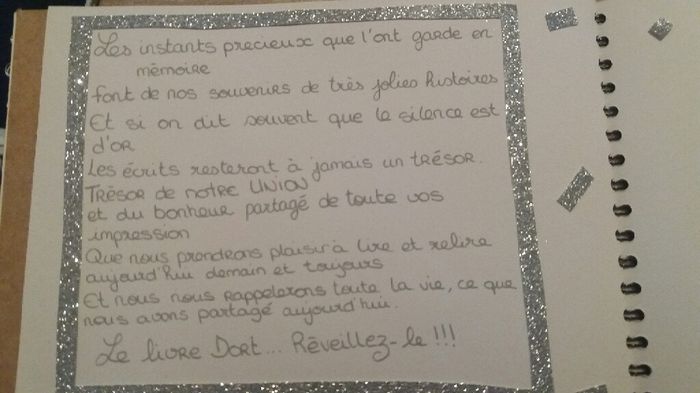 Les instants precieux que l'ont garde en
mémoire
font de nos souvenirs de très jolies histoires
Et si on dit souvent que le silence est
d'OR
Les écrits resteront à jamais un TRÉSOR.
TRÉSOR de notre UNION
et du bonheur partagé de toute vos
impression
Que nous prendrons plaisir à lire et relire
aujourd'hui demain et toujours
Et nous nous rappelerons toute la vie, ce que
nous avons partagé aujourd'hui.
Le livre Dort... Réveillez-le !!!